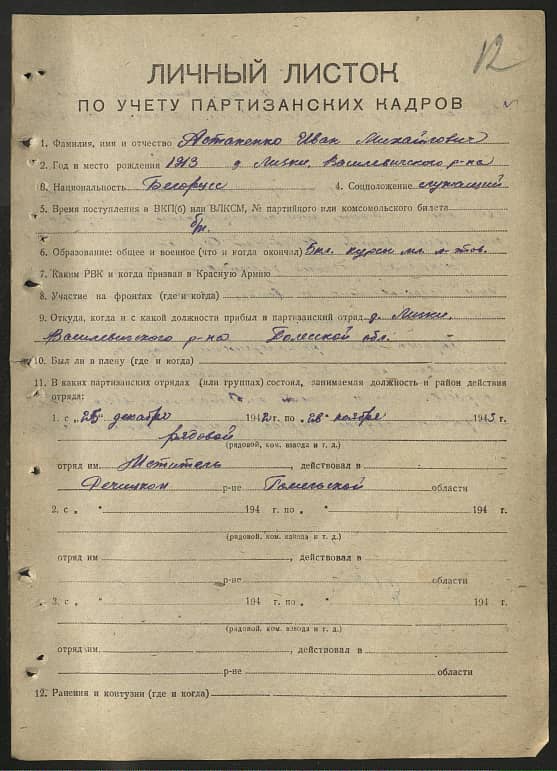 12
ЛИЧНЫЙ ЛИСТОК
ПО УЧЕТУ ПАРТИЗАНСКИХ КАДРОВ
1. Фамилия, имя и отчество Астапенко Иван Михайлович
2. Год и место рождения 1913 д Василевичского р-на
3. Национальность Белорусс 4. Соцположение служащий
5. Время поступления в ВКП(б) или ВЛКСМ, № партийного или комсомольского билета
бп.
6. Образование: общее и военное (что и когда окончал) курсы мл.
7. Каким РВК и когда призван в Красную Армию
8. Участие на фронтах (где и когда)
9. Откуда, когда и с какой должности прибыл в партизанский отряд д.
Василевичского р-на Полесской обл.
10. Был ли в плену (где и когда)
11. В каких партизанских отрядах (или группах) состоял, занимаемая должность и район действия
отряда:
1. с „25" декабря 1942 г. по „28" ноября 1943 г.
рядовой
(рядовой, ком. взвода и т. д.)
отряд им. Мститель, действовал в
Речицком р-не Гомельской области
2. с „ " 194 г. по „ " 194 г.
(рядовой, ком. взвода и т. д.)
отряд им , действовал в
р-не области
3. с „ " 194 г. по „ " 194 г.
(рядовой, ком. взвода и т. д.)
отряд им. , действовал в
р-не области
12. Ранения и контузии (где и когда)